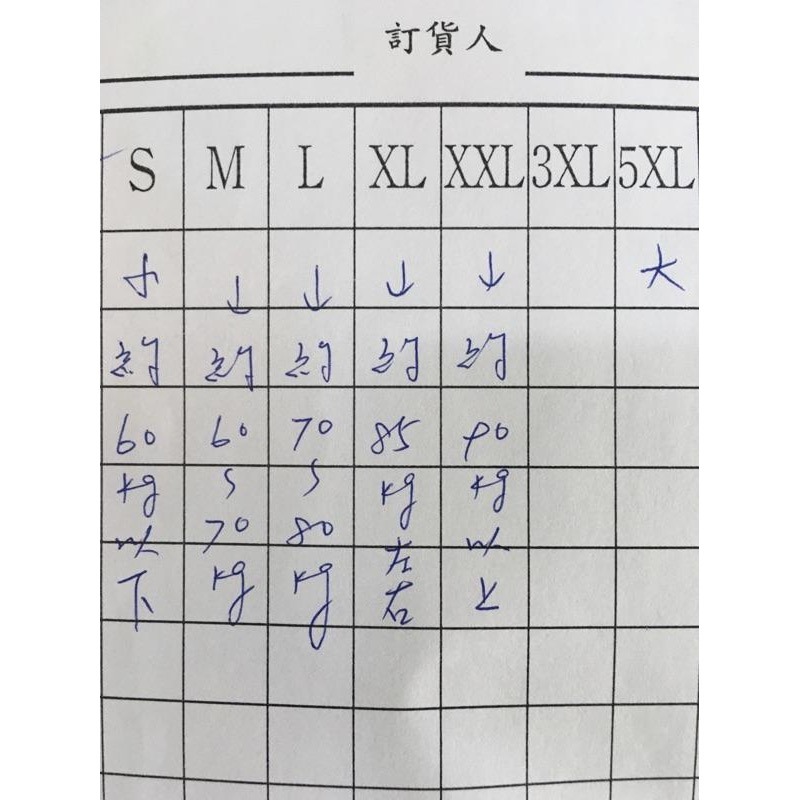 訂貨人
S M L XL XXL 3XL 5XL
小 ↓ ↓ ↓ ↓ 大
約 約 約 約 約
60 60 70 85 90
kg ~ ~ kg kg
以 70 80 左 以
下 kg kg 右 上